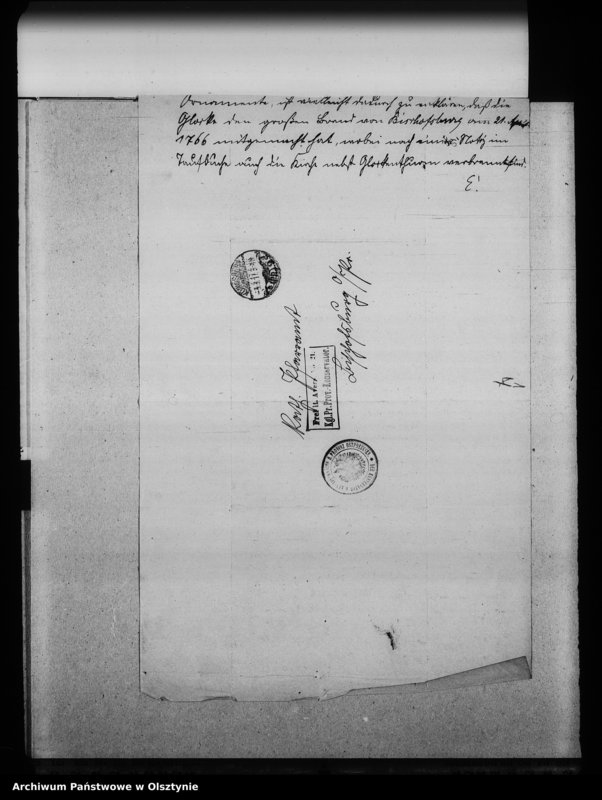 Ornamente, ist vielleicht dadurch zu erklären, daß die
Glocke den großen Brand von Bischofsburg am 21. April
1766 mitgemacht hat, wobei nach einer Notiz im
Taufbuche auch die Kirche nebst Glockenturm verbrannt sind.
E!
Kath. Pfarramt
Bischofsburg O/Pr.
Frei lt. Avers. No. 21.
Kgl. Pr. Prov. Konservator.
Archiwum Państwowe w Olsztynie